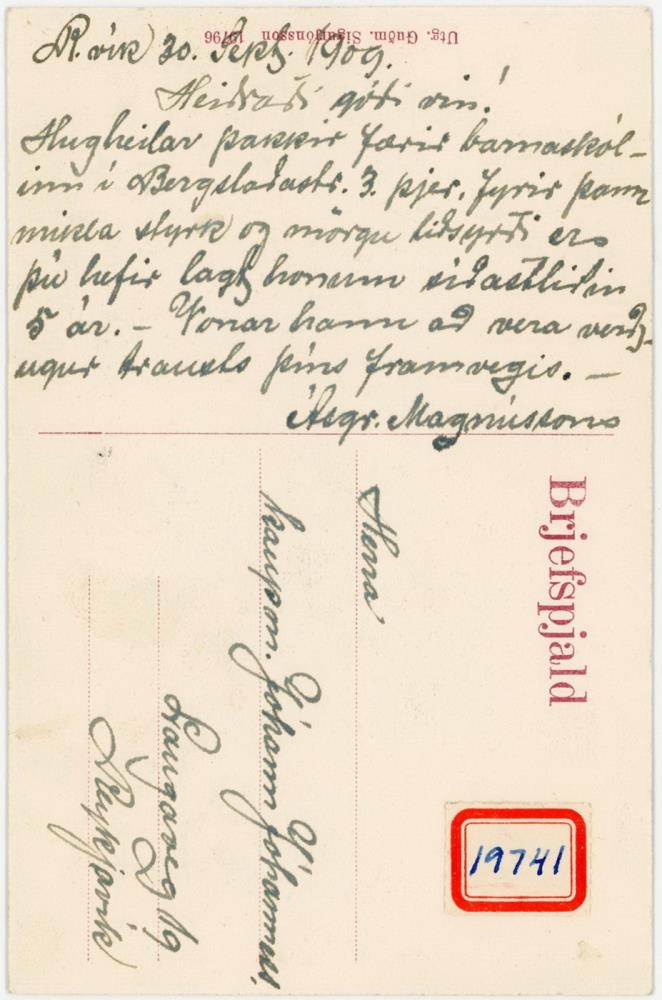 Utg. Guðm. Sigurjónsson 19796
R.vík 30. Sept. 1909.
Heiðraði góði vin!
Hugheilar þakkir færir barnaskól-
inn í Bergstaðastr. 3. þjer, fyrir þann
mikla styrk og mörgu liðsyrði er
þú hefir lagt honum síðastliðin
5 ár. – Vonar hann að vera verð-
ugur trausts þíns framvegis. –
Ásgr. Magnússon
Brjefspjald
Herra
kaupm. Jóhann Jóhanness.
Laugaveg 19
Reykjavík
19741